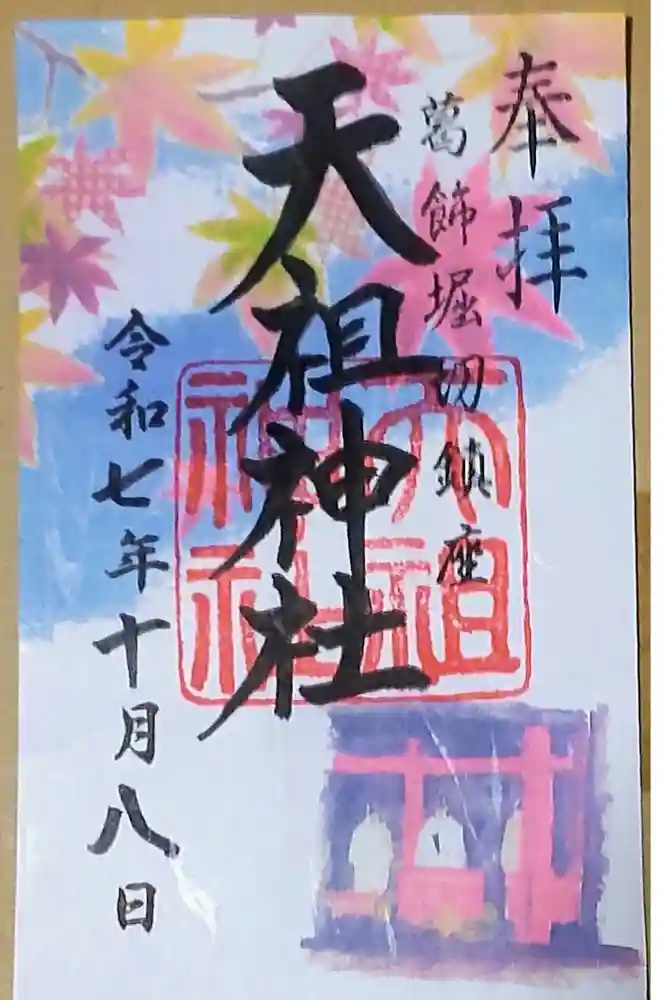 奉拝
葛飾堀切鎮座
天祖神社
天祖
神社
令和七年十月八日